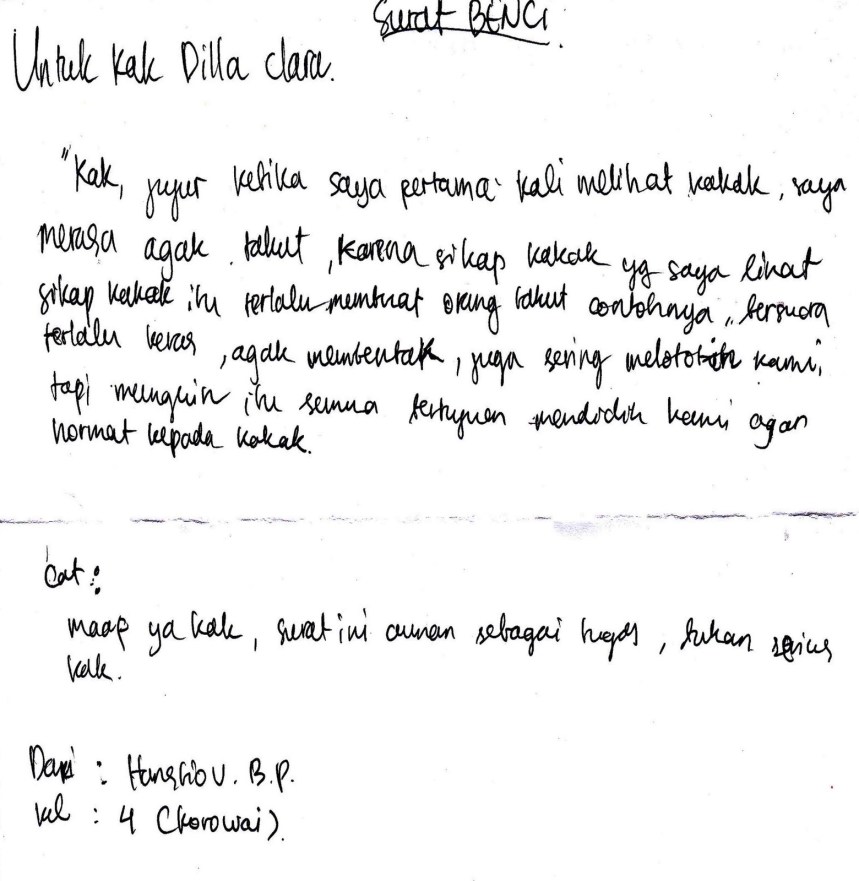 Surat BENCI.
Untuk Kak Dilla Clara.
"Kak, jujur ketika saya pertama kali melihat kakak, saya
merasa agak takut, karena sikap kakak yg saya lihat
sikap kakak itu terlalu membuat orang takut contohnya, bersuara
terlalu keras, agak membentak, juga sering melototin kami,
tapi mungkin itu semua bertujuan mendidik kami agar
hormat kepada kakak.
Cat :
maap ya kak, surat ini cuman sebagai tugas, bukan serius
kak.
Dari : B.P.
kel : 4 (korowai).